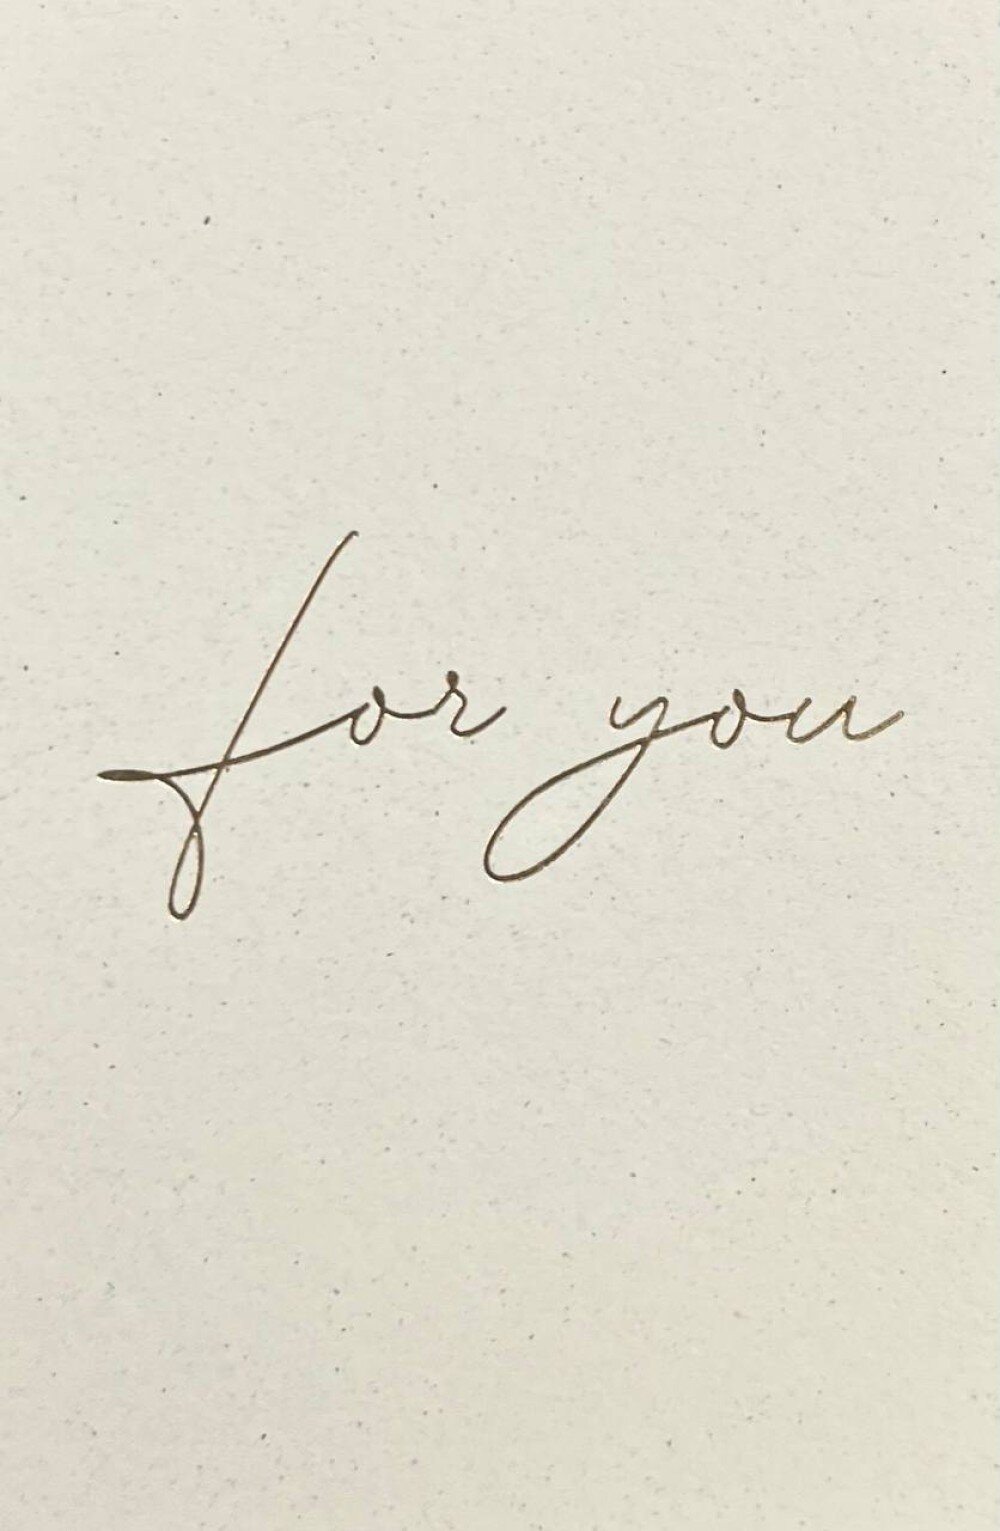 for you